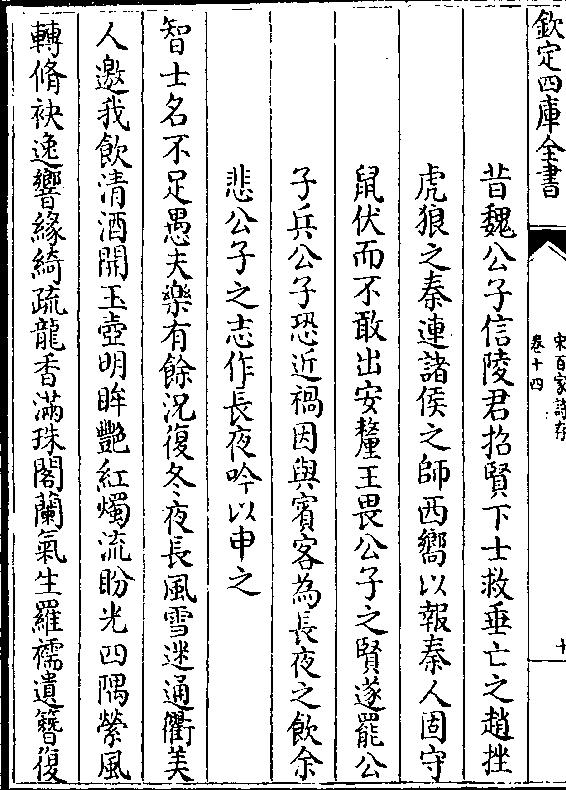 欽定四庫全書
宋百家詩存
卷十四
十
昔魏公子信陵君招賢下士救垂亡之趙挫
虎狼之秦連諸侯之師西嚮以報秦人固守
鼠伏而不敢出安釐王畏公子之賢遂罷公
子兵公子恐近禍因與賓客為長夜之飲余
悲公子之志作長夜吟以申之
智士名不足愚夫樂有餘况復冬夜長風雪迷通衢美
人邀我飲清酒開玉壺明眸艷紅燭流盼光四隅縈風
轉脩袂逸響緣綺疏龍香滿珠閣蘭氣生羅襦遺簪復